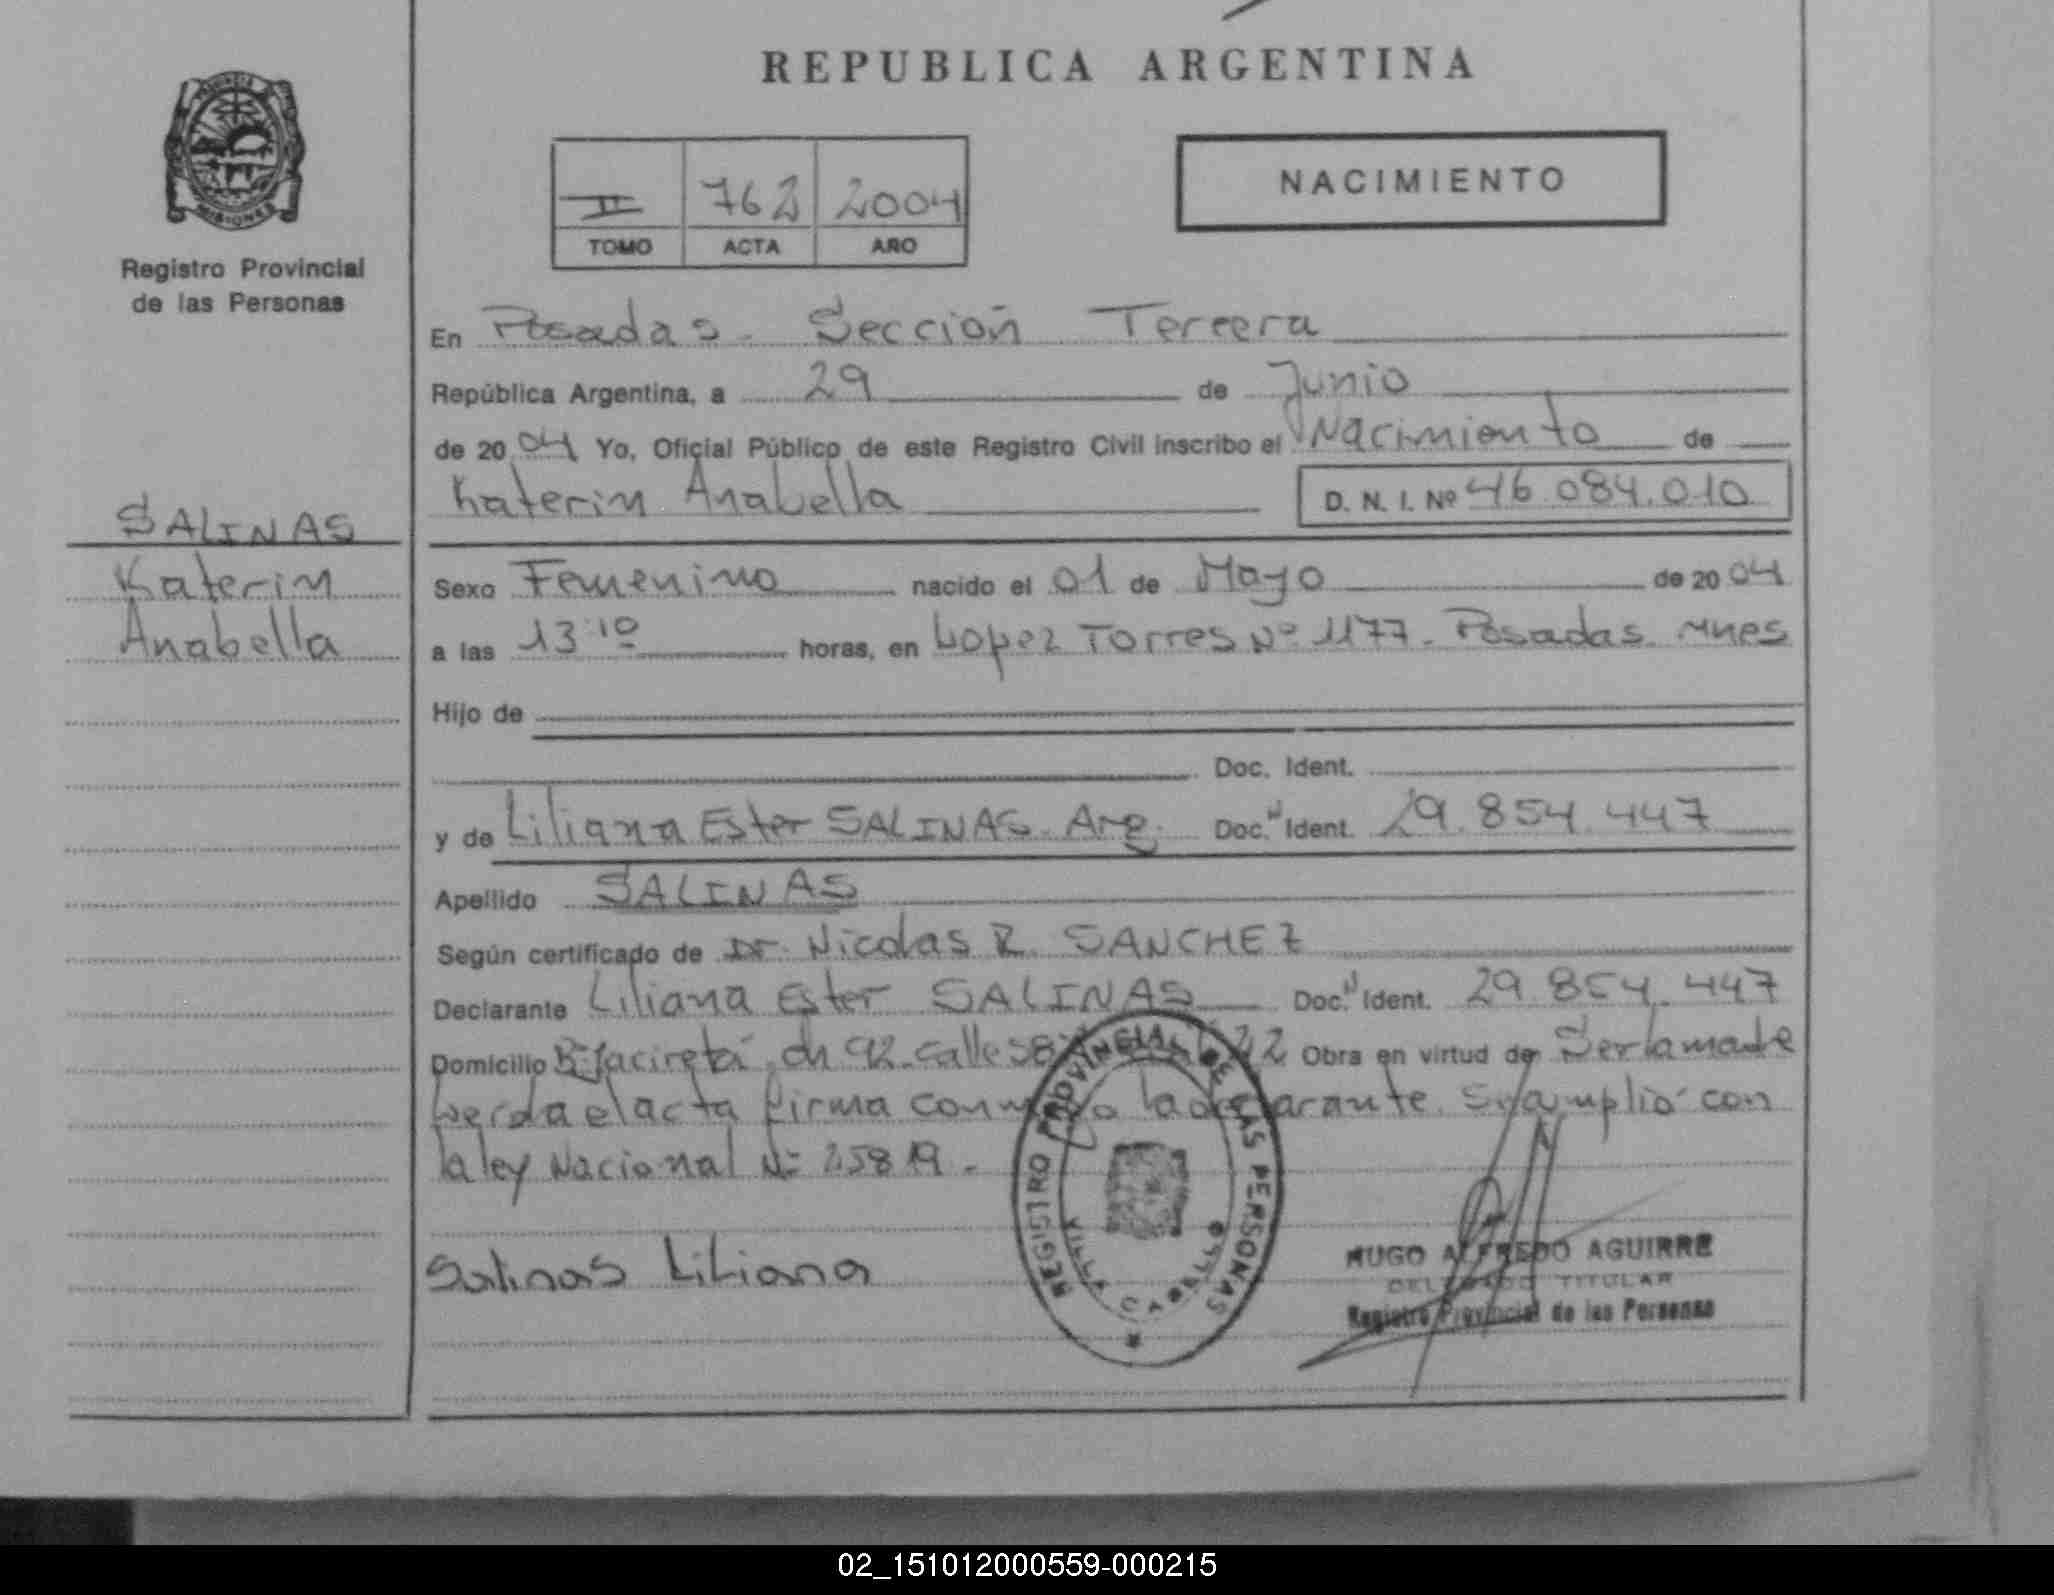 REPUBLICA ARGENTINA
MISIONES
Registro Provincial
de las Personas
II 762 2004
TOMO ACTA AÑO
NACIMIENTO
En Posadas - Sección Tercera
República Argentina, a 29 de Junio
de 2004 Yo, Oficial Público de este Registro Civil inscribo el Nacimiento de
Katerin Anabella D. N. I. Nº 46.084.010
SALINAS
Katerin
Anabella
Sexo Femenino nacido el 01 de Mayo de 2004
a las 13:10 horas, en Lopez Torres Nº 1177 - Posadas Mnes
Hijo de
Doc. Ident.
y de Liliana Ester SALINAS. Arg. Doc. Ident. 29.854.447
Apellido SALINAS
Según certificado de Dr. Nicolas R. SANCHEZ
Declarante Liliana Ester SALINAS Doc. Ident. 29.854.447
Domicilio ch 92 Calle Obra en virtud de Ser la madre
el acta firma la declarante. Se amplió con
la ley Nacional Nº 25819.
Salinas Liliana
REGISTRO PROVINCIAL DE LAS PERSONAS
VILLA CABELLO
HUGO ALFREDO AGUIRRE
DELEGADO TITULAR
Registro Provincial de las Personas
02_151012000559-000215